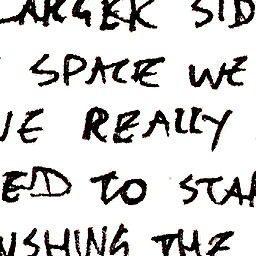 LARGER SID
SPACE WE
WE REALLY
ED TO STAR
USHING THE